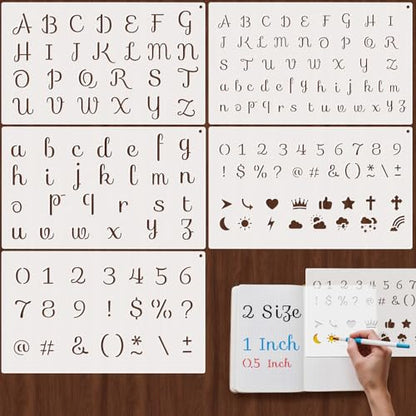 A B C D E F G
H I J K L M N
O P Q R S T
U V W X Y Z
A B C D E F G H I
J K L M N O P Q R
S T U V W X Y Z
a b c d e f g h i j k l m
n o p q r s t u v w x y z
a b c d e f g
h i j k l m n
o p q r s t
u v w x y z
0 1 2 3 4 5 6 7 8 9
! $ % ? @ # & ( ) * ~ \ ±
0 1 2 3 4 5 6
7 8 9 ! $ % ?
@ # & ( ) * ~ \ ±
2 Size
1 Inch
0.5 Inch
0 1 2 3 4 5
! $ % ? @ # & (